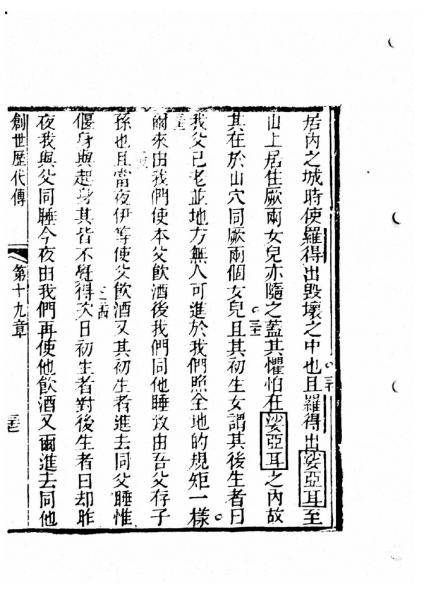 居內之城時使羅得出毀壞之中也且羅得出𡥼亞耳至
山上居住厥兩女兒亦隨之蓋其懼怕在𡥼亞耳之內故
其在於山穴同厥兩個女兒且其初生女謂其後生者曰
我父已老並地方無人可進於我們照全地的規矩一樣
爾來由我們使本父飲酒後我們同他睡致由吾父存子
孫也且當夜伊等使父飲酒又其初生者進去同父睡惟
偃身與起身其皆不覺得次日初生者對後生者曰却昨
夜我與父同睡今夜由我們再使他飲酒又爾進去同他
創世歷代傳 第十九章